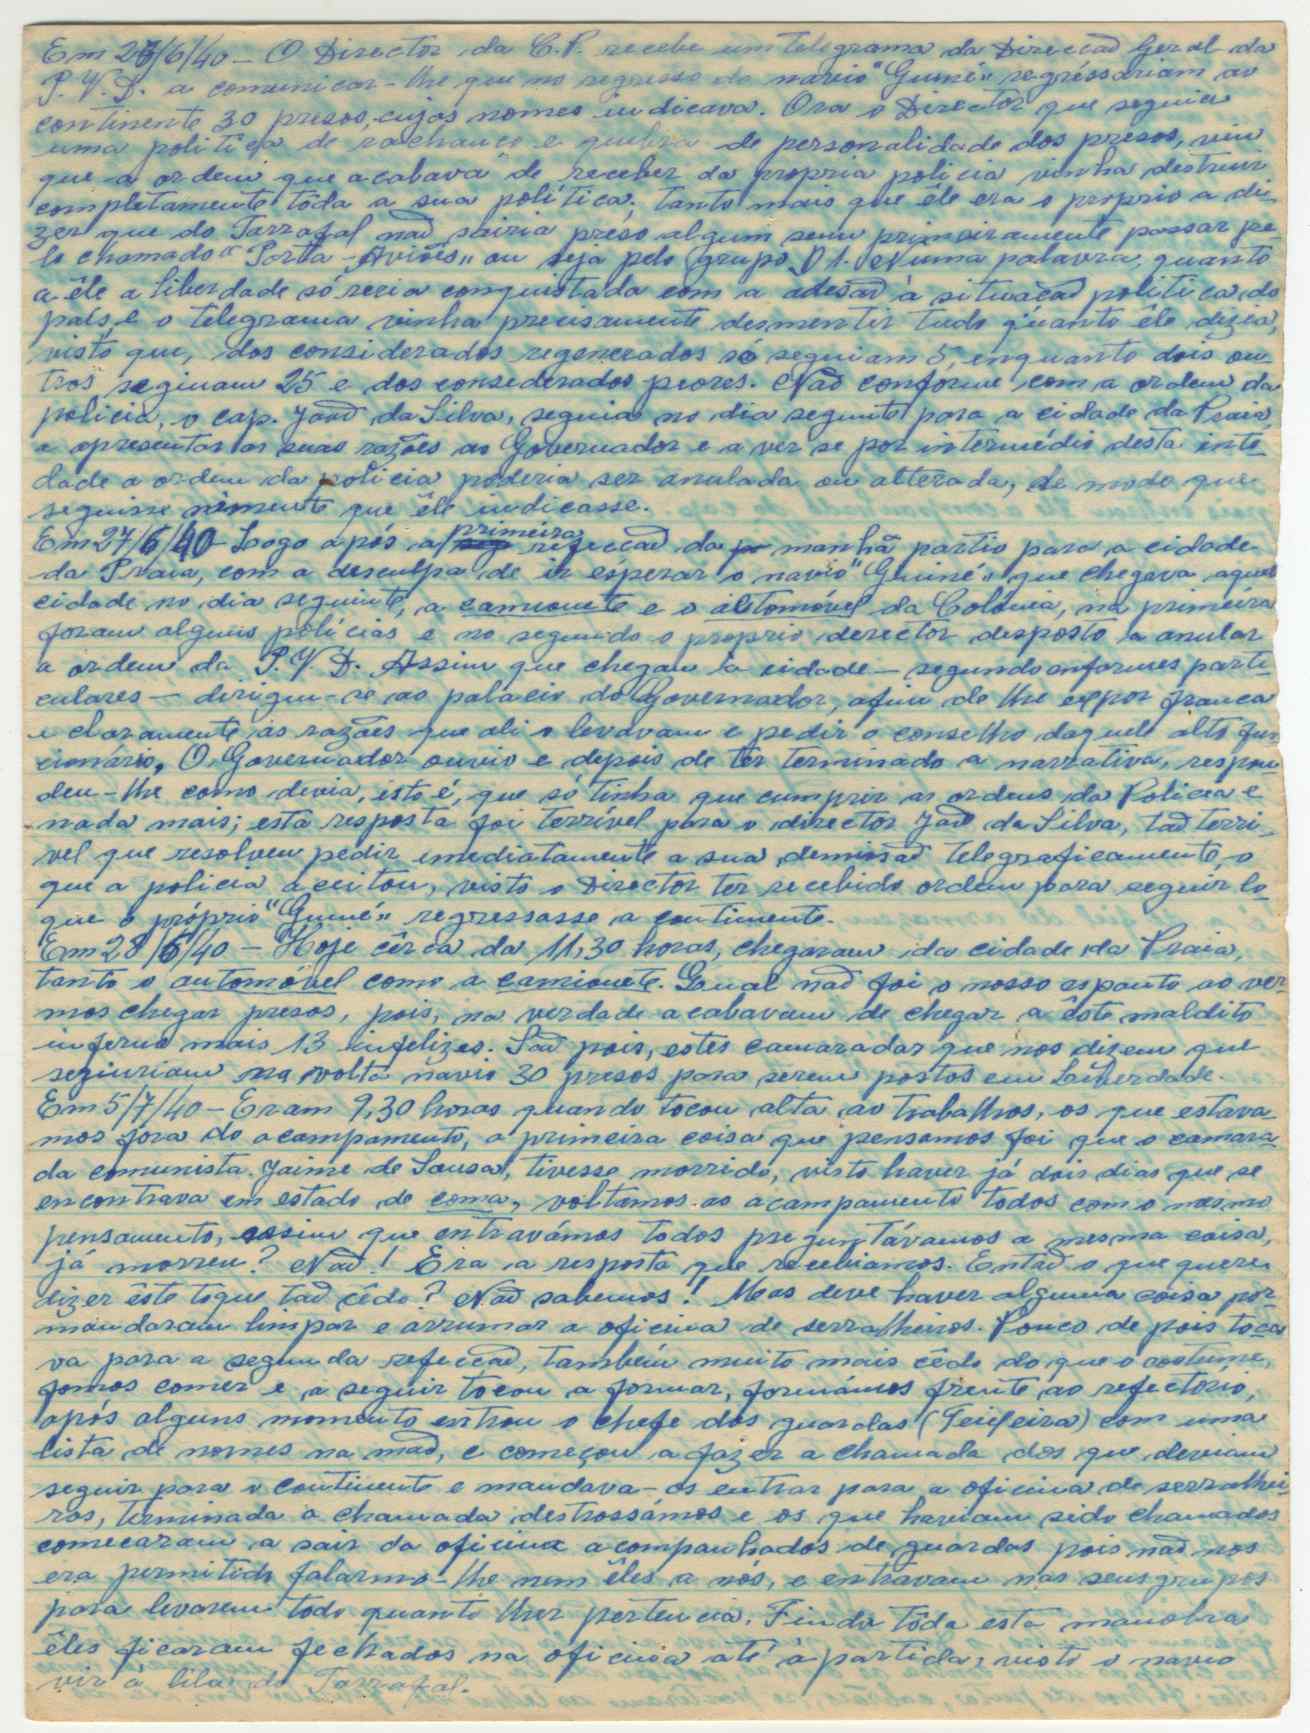 Em 26/6/40 - O Director da C.P. recebe um telegrama da Direcção Geral da
P.V.D. a comunicar-lhe que no regresso do navio "Guiné" regréssariam ao
continente 30 presos, cujos nomes indicava. Ora o Director que seguia
uma politica de rachanço e quebra de personalidade dos presos, viu
que a ordem que acabava de receber da propria policia vinha destruir
completamente tôda a sua politica, tanto mais que êle era o proprio a di-
zer que do Tarrafal não sairia prêso algum sem primeiramente passar pe-
lo chamado "Porta-Aviões" ou seja pelo grupo D 1. Numa palavra, quanto
a êle a liberdade só seria conquistada com a adesão à situação politica do
país, e o telegrama vinha precisamente desmentir tudo quanto êle dizia,
visto que, dos considerados regenerados só seguiam 5, enquanto dois ou-
tros seguiam 25 e dos considerados peores. Não conforme com a ordem da
policia, o cap. João da Silva, seguia no dia seguinte para a cidade da Praia,
a apresentar as suas razões ao Governador e a ver se por intermédio desta enti-
dade a ordem da policia poderia ser anulada ou alterada, de modo que
seguisse sómente que êle indicasse.
Em 27/6/40 - Logo após a primeira refeição da manhã partio para a cidade
da Praia, com a desculpa de ir esperar o navio "Guiné" que chegava aquela
cidade no dia seguinte, a camionete e o altomóvel da Colónia, na primeira
foram alguns polícias e no segundo o proprio derector desposto a anular
a ordem da P.V.D. Assim que chegam à cidade - segundo enformes parti-
culares - dirigiu-se ao palacio do Governador, afim de lhe expor franca
e claramente as razões que ali o levávam e pedir o conselho daquele alto fun-
cionário. O Governador ouvio e depois de ter terminado a narrativa, respon-
deu-lhe como devia, isto é, que só tinha que cumprir as ordens da Policia e
nada mais; esta resposta foi terrivel para o director João da Silva, tão terri-
vel que resolveu pedir imediatamente a sua demissão telegraficamente o
que a policia aceitou, visto o Director ter recebido ordem para seguir lo-
que o próprio "Guiné" regressasse a continente.
Em 28/6/40 - Hoje cêrca da 11,30 horas, chegaram da cidade da Praia,
tanto o automóvel como a camionete. Qual não foi o nosso espanto ao ver-
mos chegar presos, pois, na verdade acabavam de chegar a êste maldito
inferno mais 13 infelizes. São pois, estes camaradas que nos dizem que
seguiriam na volta navio 30 presos para serem postos em Liberdade.
Em 5/7/40 - Eram 9,30 horas quando tocou alta ao trabalhos, os que estava-
mos fóra do acampamento, a primeira coisa que pensamos foi que o camara-
da comunista Jaime de Sousa, tivesse morrido, visto haver já dois dias que se
encontrava em estado de coma, voltamos ao acampamento todos com o mesmo
pensamento, assim que entravámos todos preguntávamos a mesma coisa,
já morreu? Não! Era a resposta que recebiamos. Então o que quere
dizer êste toque tão cêdo? Não sabemos! Mas deve haver alguma coisa por-
mandaram limpar e arrumar a oficina de serralheiros. Pouco de pois toca-
va para a segunda refeição, também muito mais cêdo do que o costume,
fomos comer e a seguir tocou a formar, formámos frente ao refectorio,
após alguns momento entrou o chefe dos guardas (Teixeira) com uma
lista de nomes na mão, e começou a fazer a chamada dos que deviam
seguir para o continente e mandava-os entrar para a oficina de serralhei-
ros, terminada a chamada destrossámos e os que haviam sido chamados
comecaram a sair da oficina acompanhados de guardas pois não nos
era permitido falarmo-lhe nem êles a nós, e entravam nas seus grupos
para levarem todo quanto lhes pertencia. Finda tôda esta manobra
êles ficaram fechados na oficina até à partida, visto o navio
vir à lila do Tarrafal.